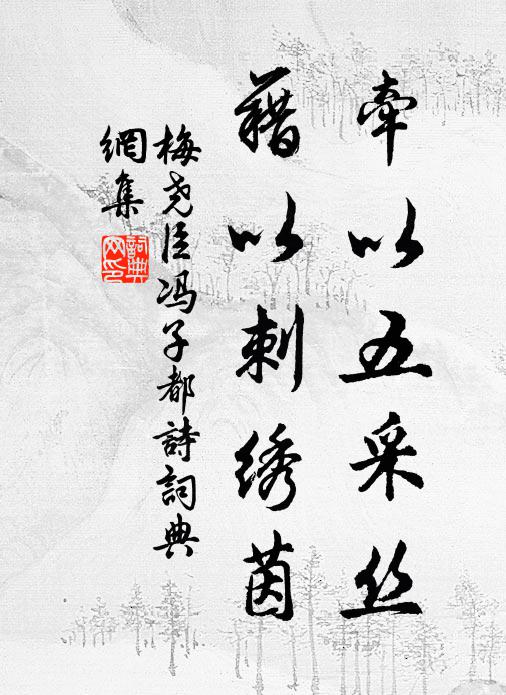 牵以五采丝
藉以刺绣茵
梅尧臣冯子都詩詞典
網集
詞典网印